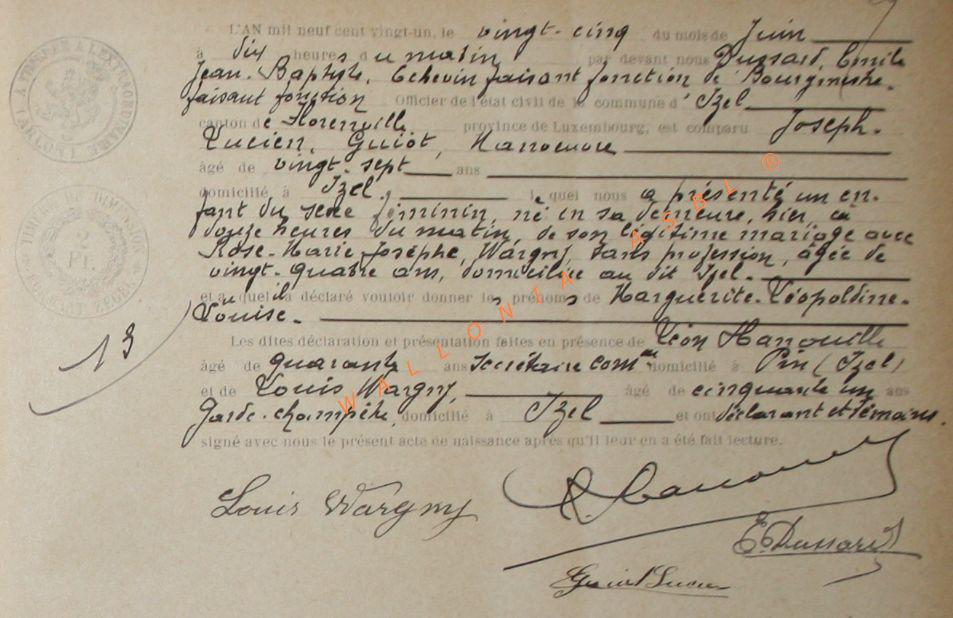 L'AN mil neuf cent vingt-un, le vingt-cinq du mois de Juin
à dix heures du matin par devant nous Dussart, Emile
Jean-Baptiste, Echevin faisant fonction de Bourgmestre
faisant fonction Officier de l'état civil de la commune d'Izel
canton de Florenville province de Luxembourg, est comparu Joseph-
Lucien, Guiot, Manoeuvre
âgé de vingt-sept ans
domicilié à Izel, lequel nous a présenté un en-
fant du sexe féminin, né en sa demeure, hier, à
douze heures du matin, de son légitime mariage avec
Rose-Marie-Josèphe, Wargny, sans profession, âgée de
vingt-quatre ans, domiciliée au dit Izel.
et auquel il a déclaré vouloir donner les prénoms de Marguerite-Léopoldine-
Louise.
Les dites déclaration et présentation faites en présence de Léon
âgé de quarante ans Secrétaire comal domicilié à Pin (Izel)
et de Louis Wargny, âgé de cinquante un ans
Garde-champêtre, domicilié à Izel et ont déclarant et témoins
signé avec nous le présent acte de naissance après qu'il leur en a été fait lecture.
13
Louis Wargny
E. Dussart
Guiot Lucien
WALLONIA ASBL ®